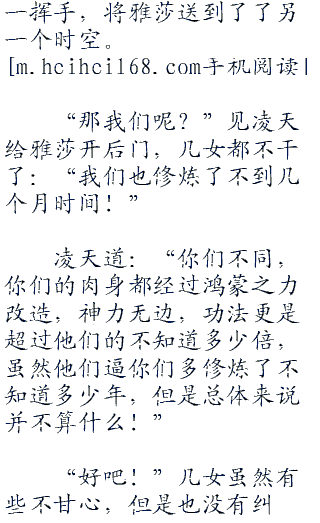 一挥手，将雅莎送到了了另
一个时空。
[m.hcihcil68.com手机阅读|
“那我们呢？”见凌天
给雅莎开后门，几女都不干
了：“我们也修炼了不到几
个月时间！”
凌天道：“你们不同，
你们的肉身都经过鸿蒙之力
改造，神力无边，功法更是
超过他们的不知道多少倍，
虽然他们逼你们多修炼了不
知道多少年，但是总体来说
并不算什么！”
“好吧！”几女虽然有
些不甘心，但是也没有纠